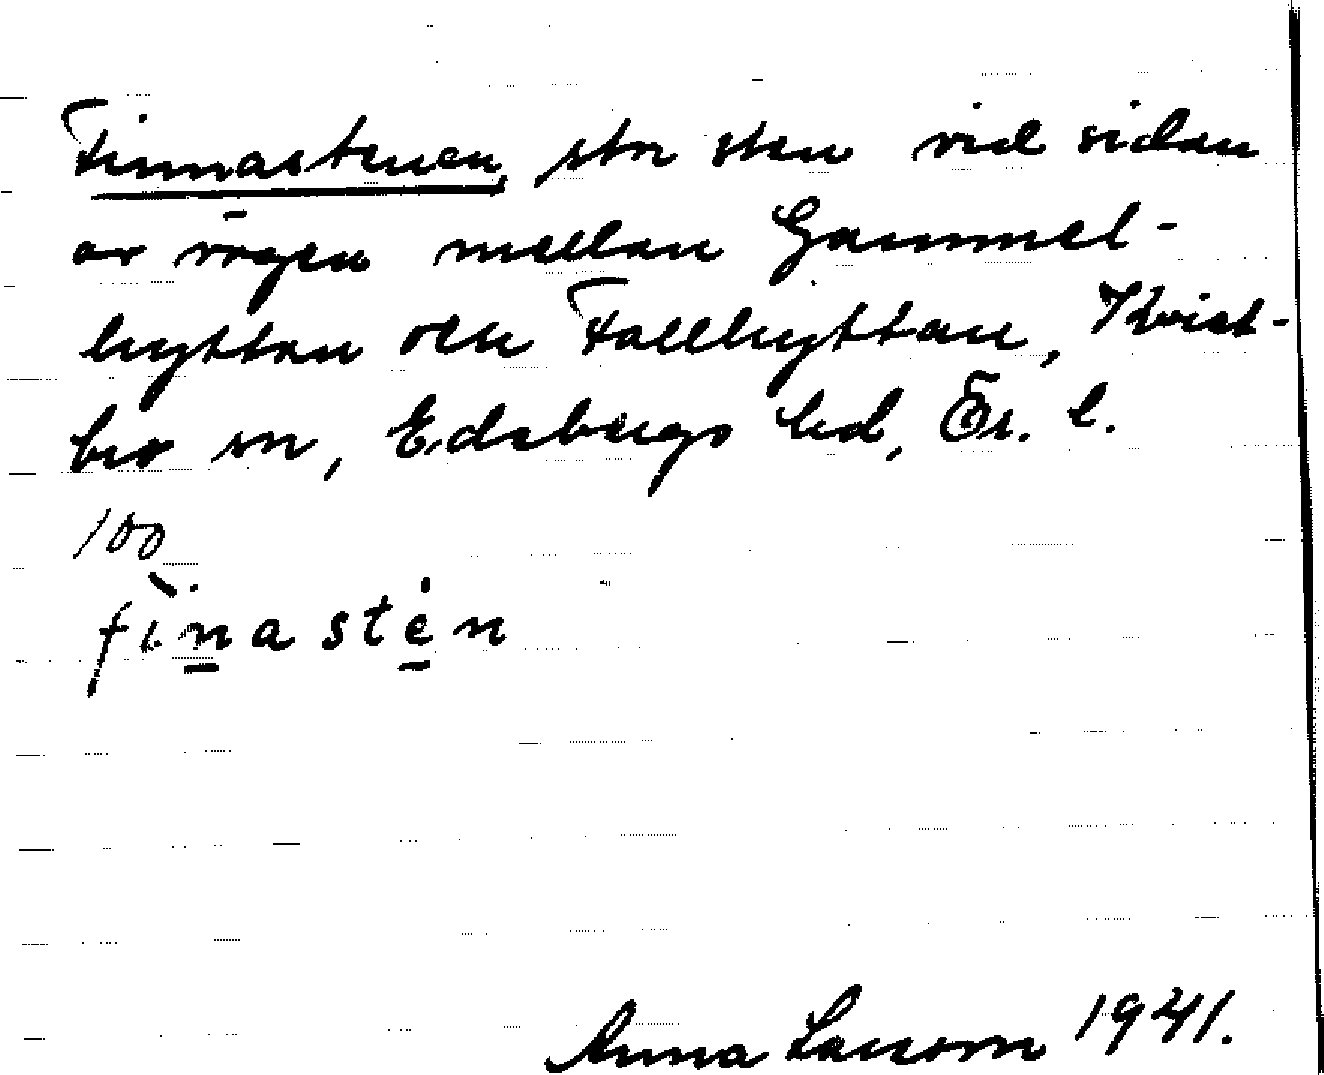 Finnastenen, stor sten vid sidan
av vägen mellan Gammel-
hyttan och Fallhyttan, Kvist-
bro sn, Edsbergs hd, Ör. l.
100
fìnastén
Anna Larsson 1941.